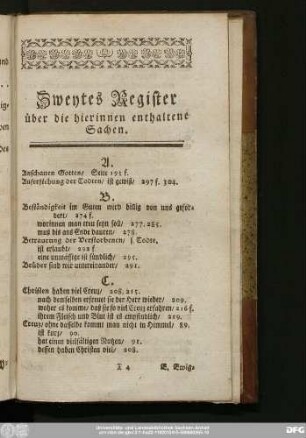 Zweytes Register
über die hierinnen enthaltene
Sachen.
A.
Anschauen Gottes/ Seite 195 f.
Auferstehung der Todten/ ist gewiß/ 297 f. 324.
B.
Beständigkeit im Guten wird billig von uns gefor-
dert/ 274 f.
worinnen man treu seyn soll/ 277. 285.
muß bis ans Ende dauren/ 278.
Betraurung der Verstorbenen, s. Tode,
ist erlaubt/
eine unmäßige ist sündlich/ 291.
Brüder sind wir untereinander/ 291.
C.
Christen haben viel Creuz/ 208. 215.
nach demselben erfreuet sie der Herr wieder/ 209.
woher es komme/ daß sie so viel Creuz erfahren/ 216 f.
ihrem Fleisch und Blut ist es empfindlich/ 219.
Creuz/ ohne dasselbe kommt man nicht in Himmel/ 89.
ist kurz/ 90.
hat einen vielfältigen Nutzen/ 91.
dessen haben Christen viel/ 208.
X 4
E. Ewig-